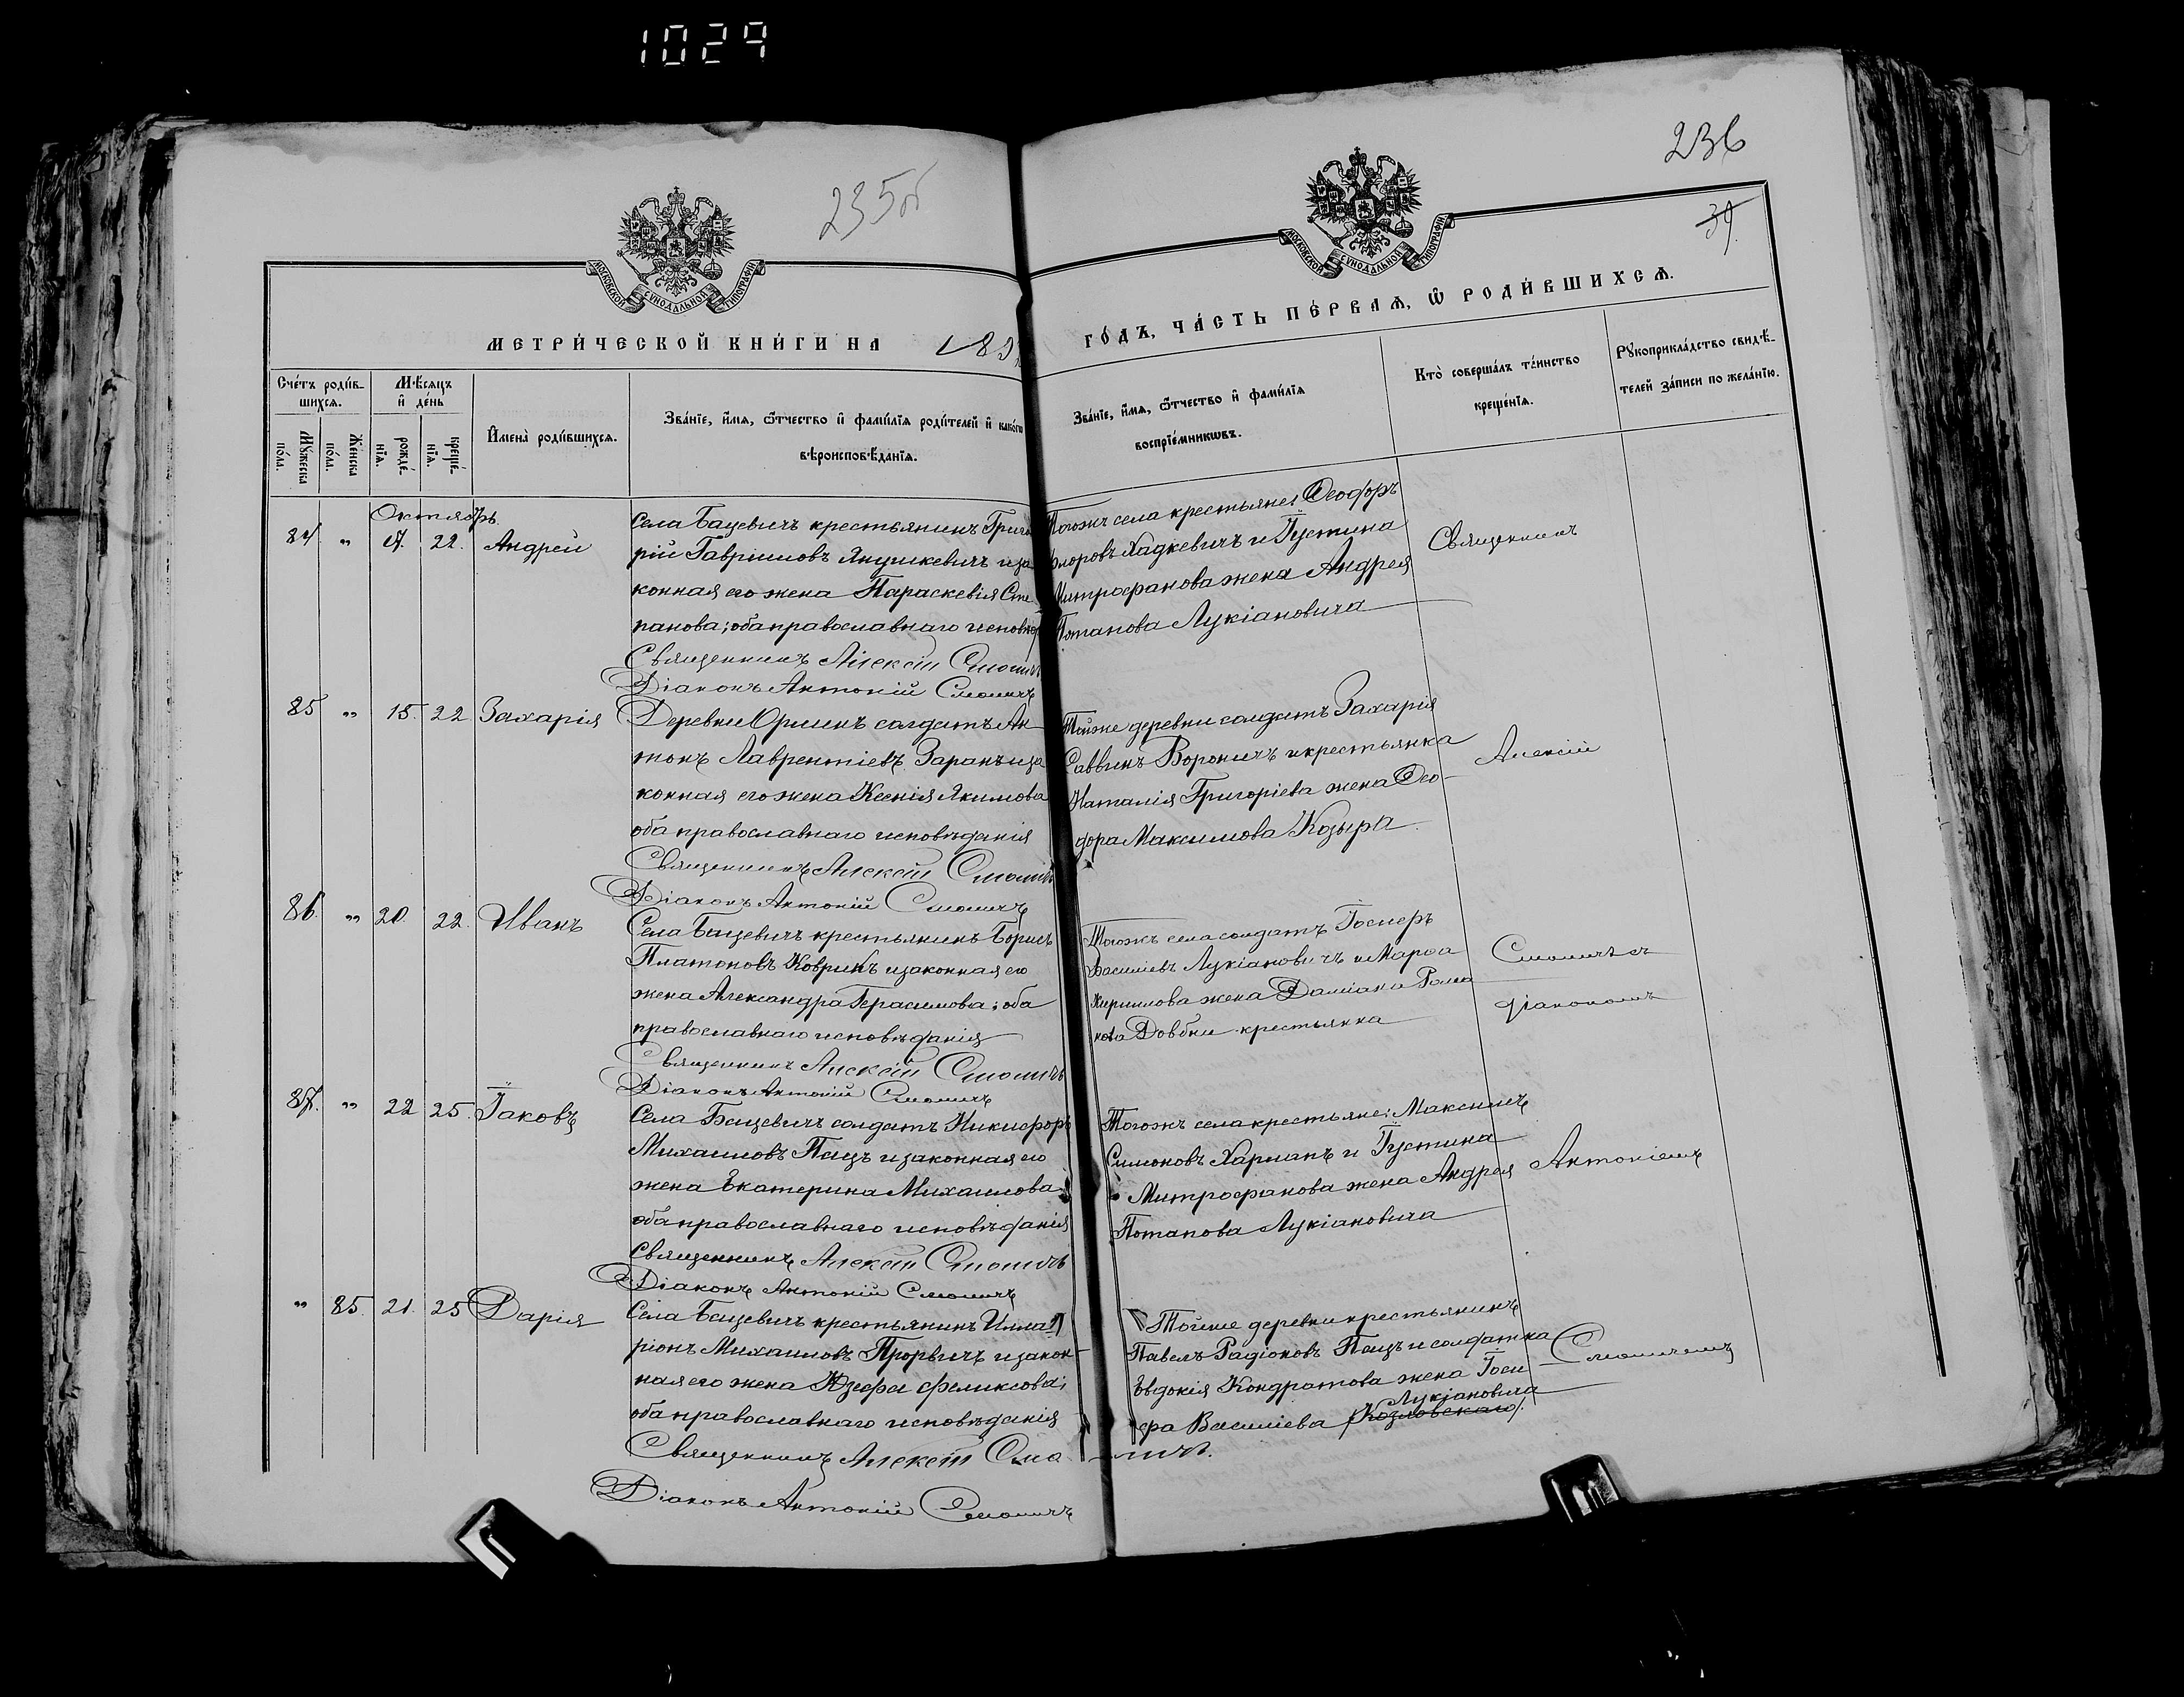 1029
235об
236
39.
МОСКОВСКОЙ СѴНОДАЛЬНОЙ ТИПОГРАФІИ
МОСКОВСКОЙ СѴНОДАЛЬНОЙ ТИПОГРАФІИ
МЕТРИ́ЧЕСКОЙ КНИ́ГИ НА 189
ГО́ДЪ, ЧА́СТЬ ПЕ́РВАѦ, Ѿ РОДИ́ВШИХСѦ.
Сче́тъ роди́в-
шихсѧ.
Мѣ́сѧцъ
и҆ де́нь
Мꙋ́жеска
по́ла.
Же́нска
по́ла.
рожде́-
нїѧ.
креще́-
нїѧ.
И҆мена̀ роди́вшихсѧ.
Зва́нїе, и҆́мѧ, ѻ҆́тчество и҆ фами́лїѧ роди́телей и҆ како́гѡ
вѣроисповѣ́данїѧ.
Зва́нїе, и҆́мѧ, ѻ҆́тчество и҆ фами́лїѧ
воспрїе́мникѡвъ.
Кто̀ соверша́лъ та́инство
креще́нїѧ.
Рꙋкоприкла́дство свидѣ́-
телей за́писи по жела́нїю.
Октябрь
84 " 17. 22. Андрей
Села Бацевичъ крестьянинъ Григо
рій Гавріиловъ Янушкевичъ и за
конная его жена Параскевія Сте
панова; оба православнаго исповѣд
Священникъ Алексій Смоличъ
Діаконъ Антоній Смоличъ
Тогожъ села крестьяне: Ѳеофоръ
Флоровъ Хадкевичъ и Іустина
Митрофанова жена Андрея
Потапова Лукіановича
Священникъ
85 " 15. 22 Захарія
Деревни Орлинъ солдатъ Ан
тонъ Лаврентіевъ Заранъ и за
конная его жена Ксенія Якимова
оба православнаго исповѣданія
Священникъ Алексій Смоличъ
Діаконъ Антоній Смоличъ
Тойже деревни солдатъ Захарія
Саввинъ Вороничъ и крестьянка
Наталія Григоріева жена Ѳео-
дора Максимова Козыра
Алексій
86. " 20. 22. Иванъ
Села Бацевичъ крестьянинъ Борисъ
Платоновъ Ковринъ и законная его
жена Александра Герасимова; оба
православнаго исповѣданія
Священникъ Алексій Смоличъ
Діаконъ Антоній Смоличъ
Тогожъ села солдатъ Іосифъ
Василіевъ Лукіановичъ и Марѳа
Кириллова жена Даміана Рома
нова Довбни крестьянка
Смоличъ съ
діакономъ
87. " 22 25. Іаковъ
Села Бацевичъ солдатъ Никифоръ
Михаиловъ Пацъ и законная его
жена Екатерина Михаилова
оба православнаго исповѣданія
Священникъ Алексій Смоличъ
Діаконъ Антоній Смоличъ
Тогожъ села крестьяне: Максимъ
Симоновъ Харланъ и Іустина
Митрофанова жена Андрея
Потапова Лукіановича
Антоніемъ
" 85. 21. 25 Дарія
Села Бацевичъ крестьянинъ Илла
ріонъ Михаиловъ Прорвичъ и закон-
ная его жена Юзефа Феликсова;
оба православнаго исповѣданія
Священникъ Алексій Смо личъ.
Діаконъ Антоній Смоличъ
Тойже деревни крестьянинъ
Павелъ Радіоновъ Пацъ и солдатка
Евдокія Кондратова жена Іоси
Лукіановича
фа Василіева (Козловскаго).
Смоличемъ